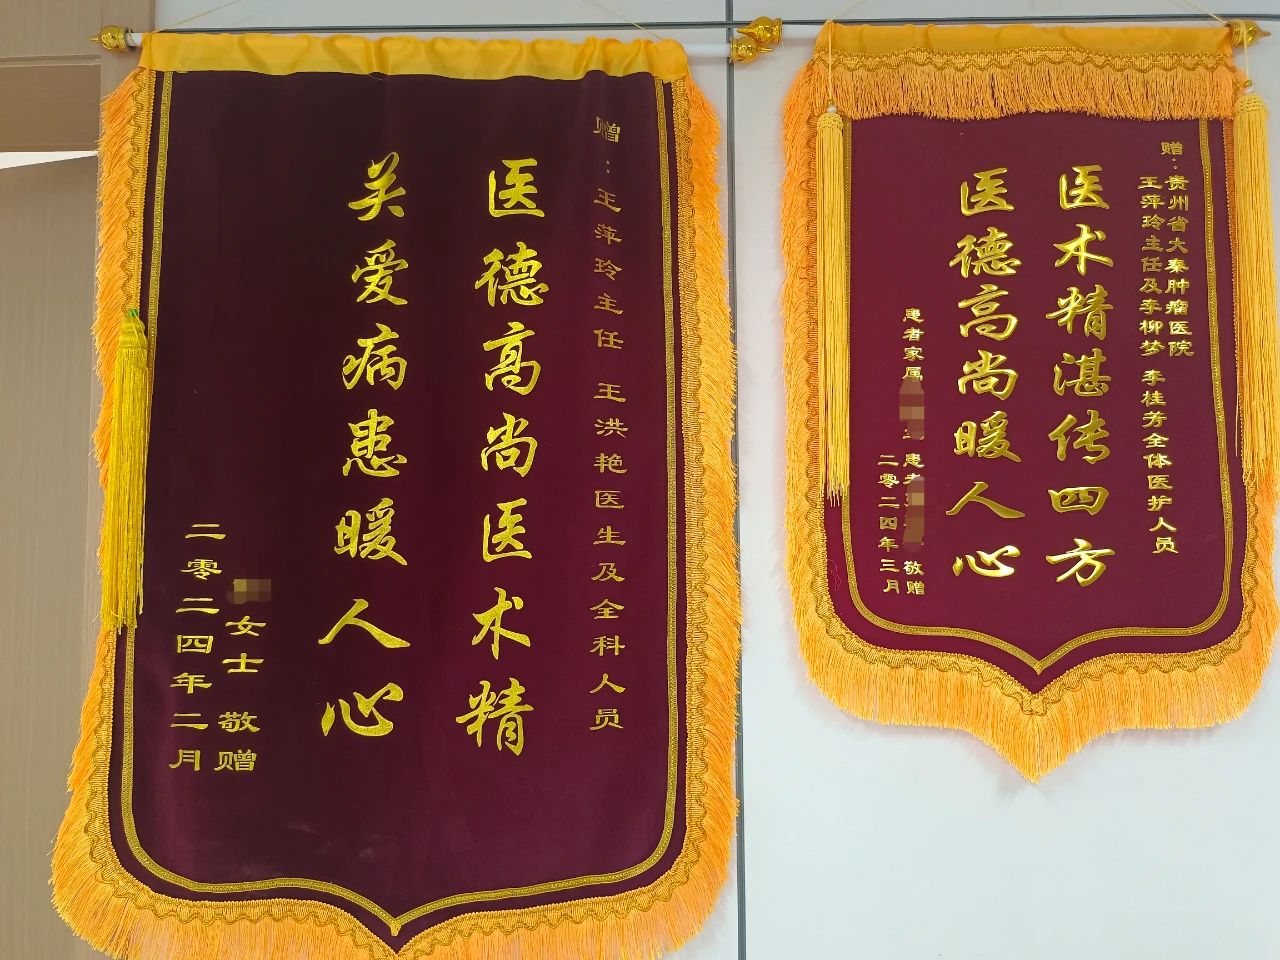 赠：王萍玲主任 王洪艳医生及全科人员
医德高尚医术精
关爱病患暖人心
女士 敬赠
二零二四年二月
赠：贵州省大秦肿瘤医院
王萍玲主任及李柳梦 李桂芳全体医护人员
医术精湛传四方
医德高尚暖人心
患者家属 患者 敬赠
二零二四年三月